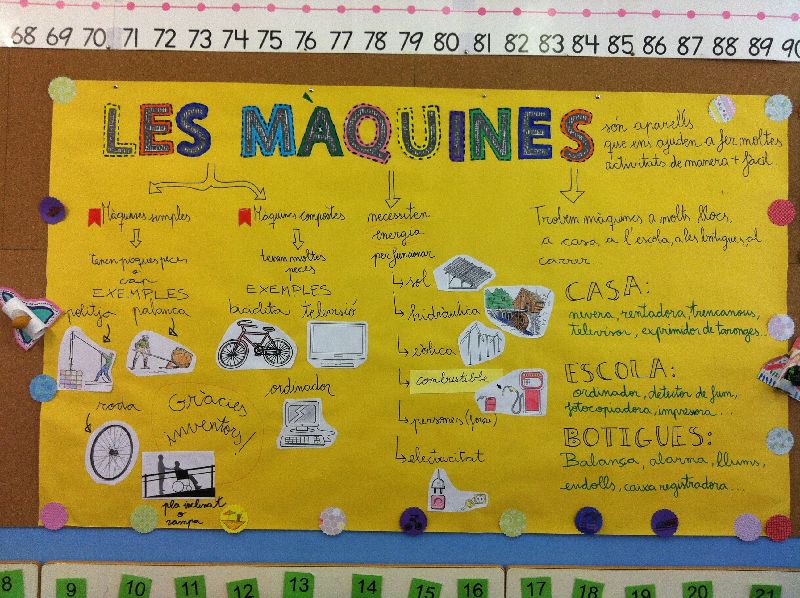 68 69 70 71 72 73 74 75 76 77 78 79 80 81 82 83 84 85 86 87 88 89 90
LES MÀQUINES
són aparells
que ens ajuden a fer moltes
activitats de manera + fàcil.
Màquines simples
tenen poques peces
o cap
EXEMPLES
politja
palanca
roda
pla inclinat
o
rampa
Gràcies
inventors!
Màquines compostes
tenen moltes
peces
EXEMPLES
bicicleta
televisió
ordinador
necessiten
energia
per funcionar
sol
hidràulica
eòlica
combustible
persones (força)
electricitat
Trobem màquines a molts llocs,
a casa, a l'escola, a les botigues, al
carrer...
CASA:
nevera, rentadora, trencanous,
televisor, exprimidor de taronges...
ESCOLA:
ordinador, detector de fum,
fotocopiadora, impresora...
BOTIGUES:
Balança, alarma, llums,
endolls, caixa registradora...
8 9 10 11 12 13 14 15 16 17 18 19 20 21